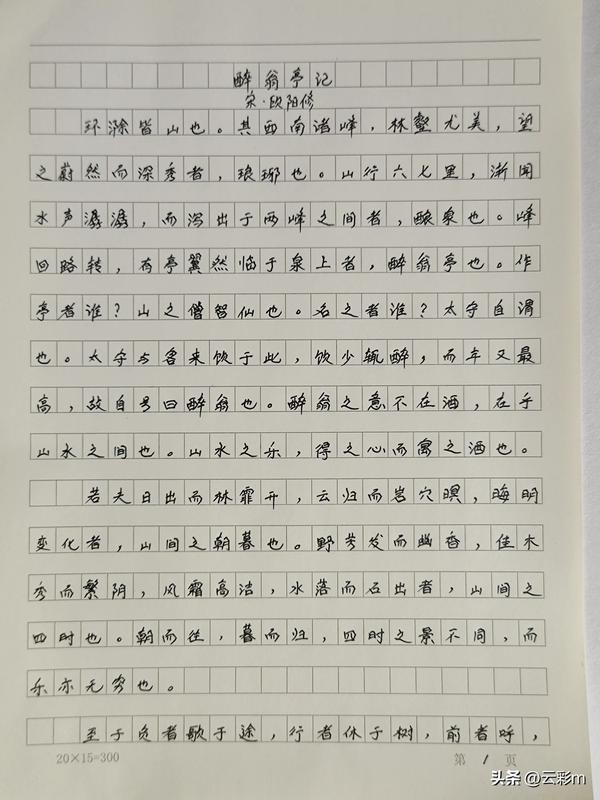 醉翁亭记
宋·欧阳修
环滁皆山也。其西南诸峰，林壑尤美，望
之蔚然而深秀者，琅琊也。山行六七里，渐闻
水声潺潺，而泻出于两峰之间者，酿泉也。峰
回路转，有亭翼然临于泉上者，醉翁亭也。作
亭者谁？山之僧智仙也。名之者谁？太守自谓
也。太守与客来饮于此，饮少辄醉，而年又最
高，故自号曰醉翁也。醉翁之意不在酒，在乎
山水之间也。山水之乐，得之心而寓之酒也。
若夫日出而林霏开，云归而岩穴暝，晦明
变化者，山间之朝暮也。野芳发而幽香，佳木
秀而繁阴，风霜高洁，水落而石出者，山间之
四时也。朝而往，暮而归，四时之景不同，而
乐亦无穷也。
至于负者歌于途，行者休于树，前者呼，
20×15=300 第 1 页
头条 @云彩m